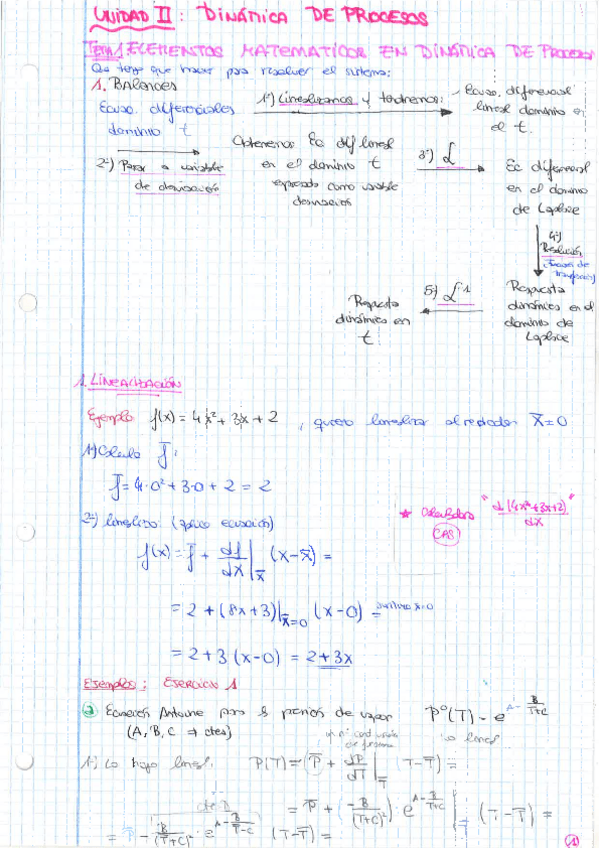 UNIDAD II: DINÁMICA DE PROCESOS
Tema 1 ELEMENTOS MATEMATICOS EN DINÁMICA DE PROCESOS
Que tengo que hacer para resolver el sistema:
1. BALANCES
Ecuac. diferenciales
dominio t
1º) Linealizamos y tendremos:
- Ecuac. diferencial
lineal dominio en
el t.
2º) Pasar a variable
de desviación
Obtenemos Ec dif lineal
en el dominio t
expresada como variable
desviación
3º) L
Ec diferencial
en el dominio
de Laplace
4º)
Resolución
(Función de
transferencia)
Respuesta
dinámica en el
dominio de
Laplace
5º) L⁻¹
Respuesta
dinámica en
t
1. LINEALIZACIÓN
Ejemplo f(x) = 4x² + 3x + 2 , quiero linealizar alrededor x̄=0
1º) Calculo f̄:
f̄ = 4·0² + 3·0 + 2 = 2
2º) linealizo (aplico ecuación)
* Calculadora "d(4x²+3x+2)/dx"
(CAS)
f(x) = f̄ + df/dx|x̄ (x-x̄) =
= 2 + (8x+3)|x̄=0 (x-0) = sustituyo x=0
= 2+3(x-0) = 2+3x
Ejemplos: EJERCICIO 1
a) Ecuación Antoine para la presión de vapor P⁰(T) = e^(A - B/(T+C))
(A, B, C → ctes) no lineal
1º) Lo hago lineal: P(T) = P̄ + dP/dT|T̄ (T-T̄) =
= P̄ + (-B/(T+C)²) · e^(A - B/(T+C))|T̄ (T-T̄) =
cte D
= P̄ - B/(T+C)² · e^(A - B/(T-C)) (T-T̄) =
1